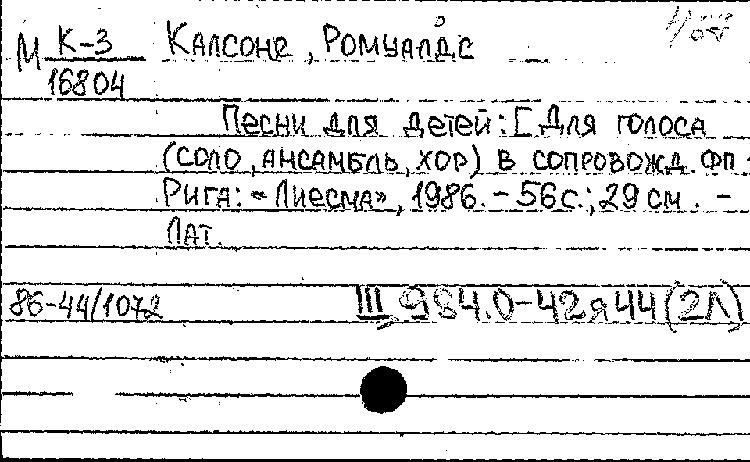 М К-3 Калсоне, Ромуалдс
16804
Песни для детей: [Для голоса
(соло, ансамбль, хор) в сопровожд. фп.
Рига: «Лиесма», 1986. - 56 с.; 29 см. -
Лат.
86-44/1072 III 984.0-42я44(2Л)